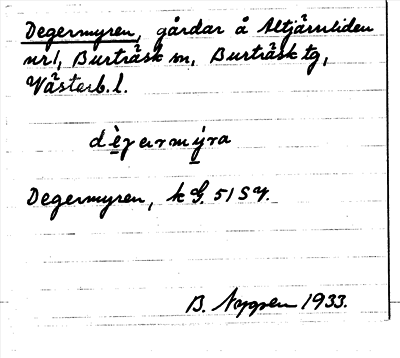 Degermyren, gårdar å Altjärnliden
nr1, Burträsk sn, Burträsk tg,
Västerb. l.
dègermýra
Degermyren, k G. 51 SV.
B. 1933.